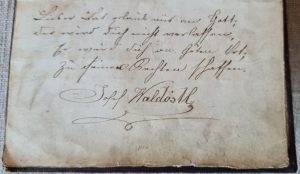 Lieber Sohn glaub nur an Gott,
der wird dich nicht verlassen,
Er wird dich am guten Ort,
Zu seiner Rechten schaffen.
Josef Waldöstl